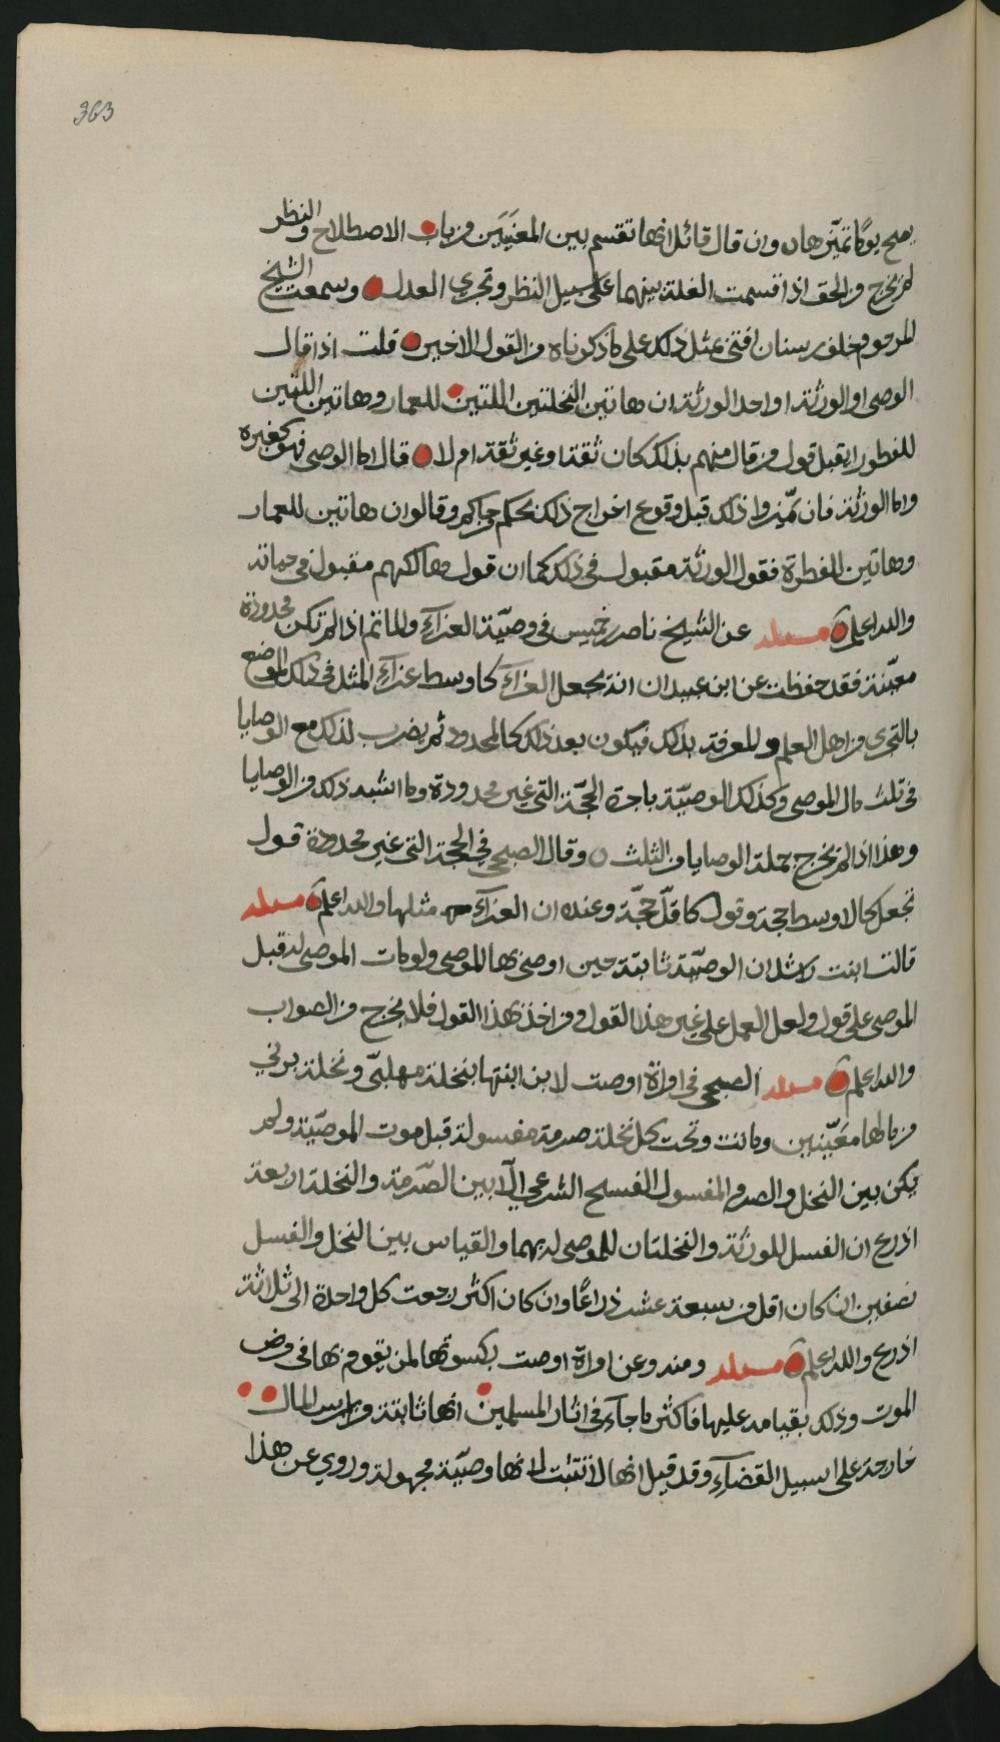 363
يصح يوما تميزهان وان قال قائل انها تقسم بين المغيبين من باب الاصطلاح والنظر
لم يخرج من الحق اذا قسمت الغلة بينهما على سبيل النظر وتحري العدل وسمعت الشيخ
المرحوم خلف بن سنان افتى بمثل ذلك على ما ذكرناه من القول الاخير قلت اذا قال
الوصي او الورثة او احد الورثة ان هاتين النخلتين اللتين للعمار وهاتين اللتين
للفطور ايقبل قول من قال منهم بذلك كان ثقة او غير ثقة ام لا قال اما الوصي فهو كغيره
واما الورثة فان تميزوا ذلك قبل وقوع اخراج ذلك بحكم حاكم وقالوا ان هاتين للعمار
وهاتين للفطرة فقول الورثة مقبول في ذلك كما ان قول هالكهم مقبول في حياته
والله اعلم مسئلة عن الشيخ ناصر بن خميس في وصية العزاء والماتم اذا لم تكن محدودة
معينة فقد حفظت عن ابن عبيدان انه يجعل العزاء كاوسط عزاء المثل في ذلك الموضع
بالتحري من اهل العلم والمعرفة بذلك فيكون بعد ذلك كالمحدود ثم يضرب لذلك مع الوصايا
في ثلث مال الموصي وكذلك الوصية باجرة الحجة التي غير محدودة وما اشبه ذلك من الوصايا
وهذا اذا لم تخرج جملة الوصايا من الثلث وقال الصبحي في الحجة التي غير محدودة قول
تجعل كالاوسط حجة وقول كاقل حجة وعنده ان العزاء مثلها والله اعلم مسئلة
قالت ابنت راشد ان الوصية ثابتة حين اوصى بها الموصي ولو مات الموصى له قبل
الموصي على قول ولعل العمل على غير هذا القول ومن اخذ بهذا القول فلا يخرج من الصواب
والله اعلم مسئلة الصبحي في امراة اوصت لابن ابنتها بنخلة مهلبي ونخلة برني
من مالها معينين وماتت وتحت كل نخلة صرمة مفسولة قبل موت الموصية ولم
يكن بين النخل والصرم المفسول الفسح الشرعي الا بين الصرمة والنخلة اربعة
اذرع ان الفسل للورثة والنخلتان للموصى له بهما والقياس بين النخل والفسل
نصفين ان كان اقل من سبعة عشر ذراعا وان كان اكثر رجعت كل واحدة الى ثلاثة
اذرع والله اعلم مسئلة ومنه وعن امراة اوصت بكسوتها لمن يقوم بها في مرض
الموت وذلك بقيامه عليها فاكثر ما جاء في اثار المسلمين انها ثابتة من راس المال
خارجة على سبيل القضاء وقد قيل انها لا تثبت لانها وصية مجهولة وروي عن هذا